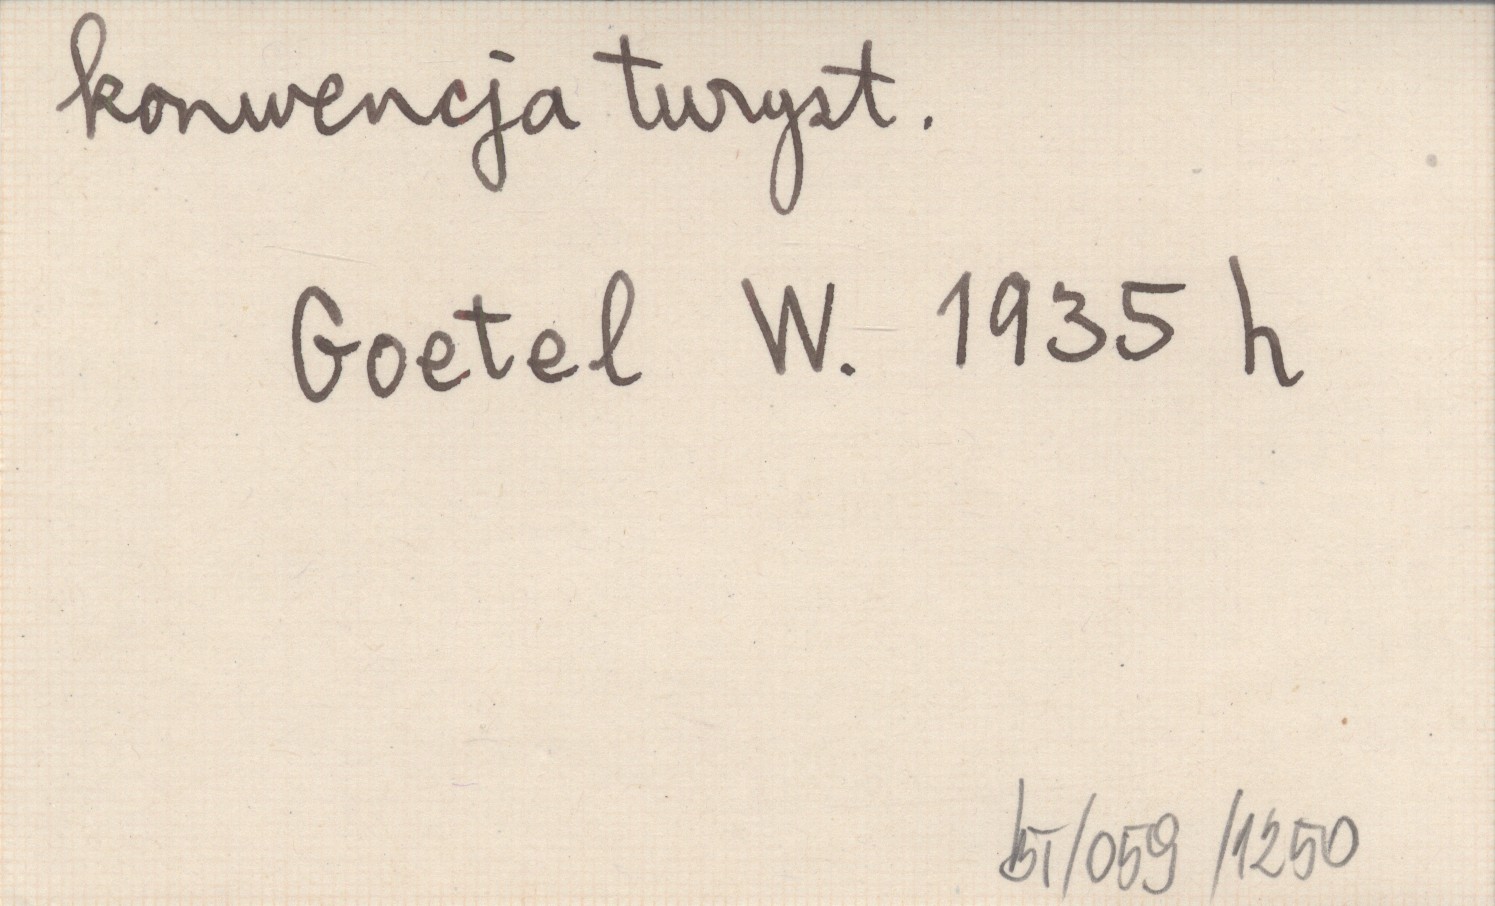 konwencja turyst.
Goetel W. 1935 h
/059 /1250